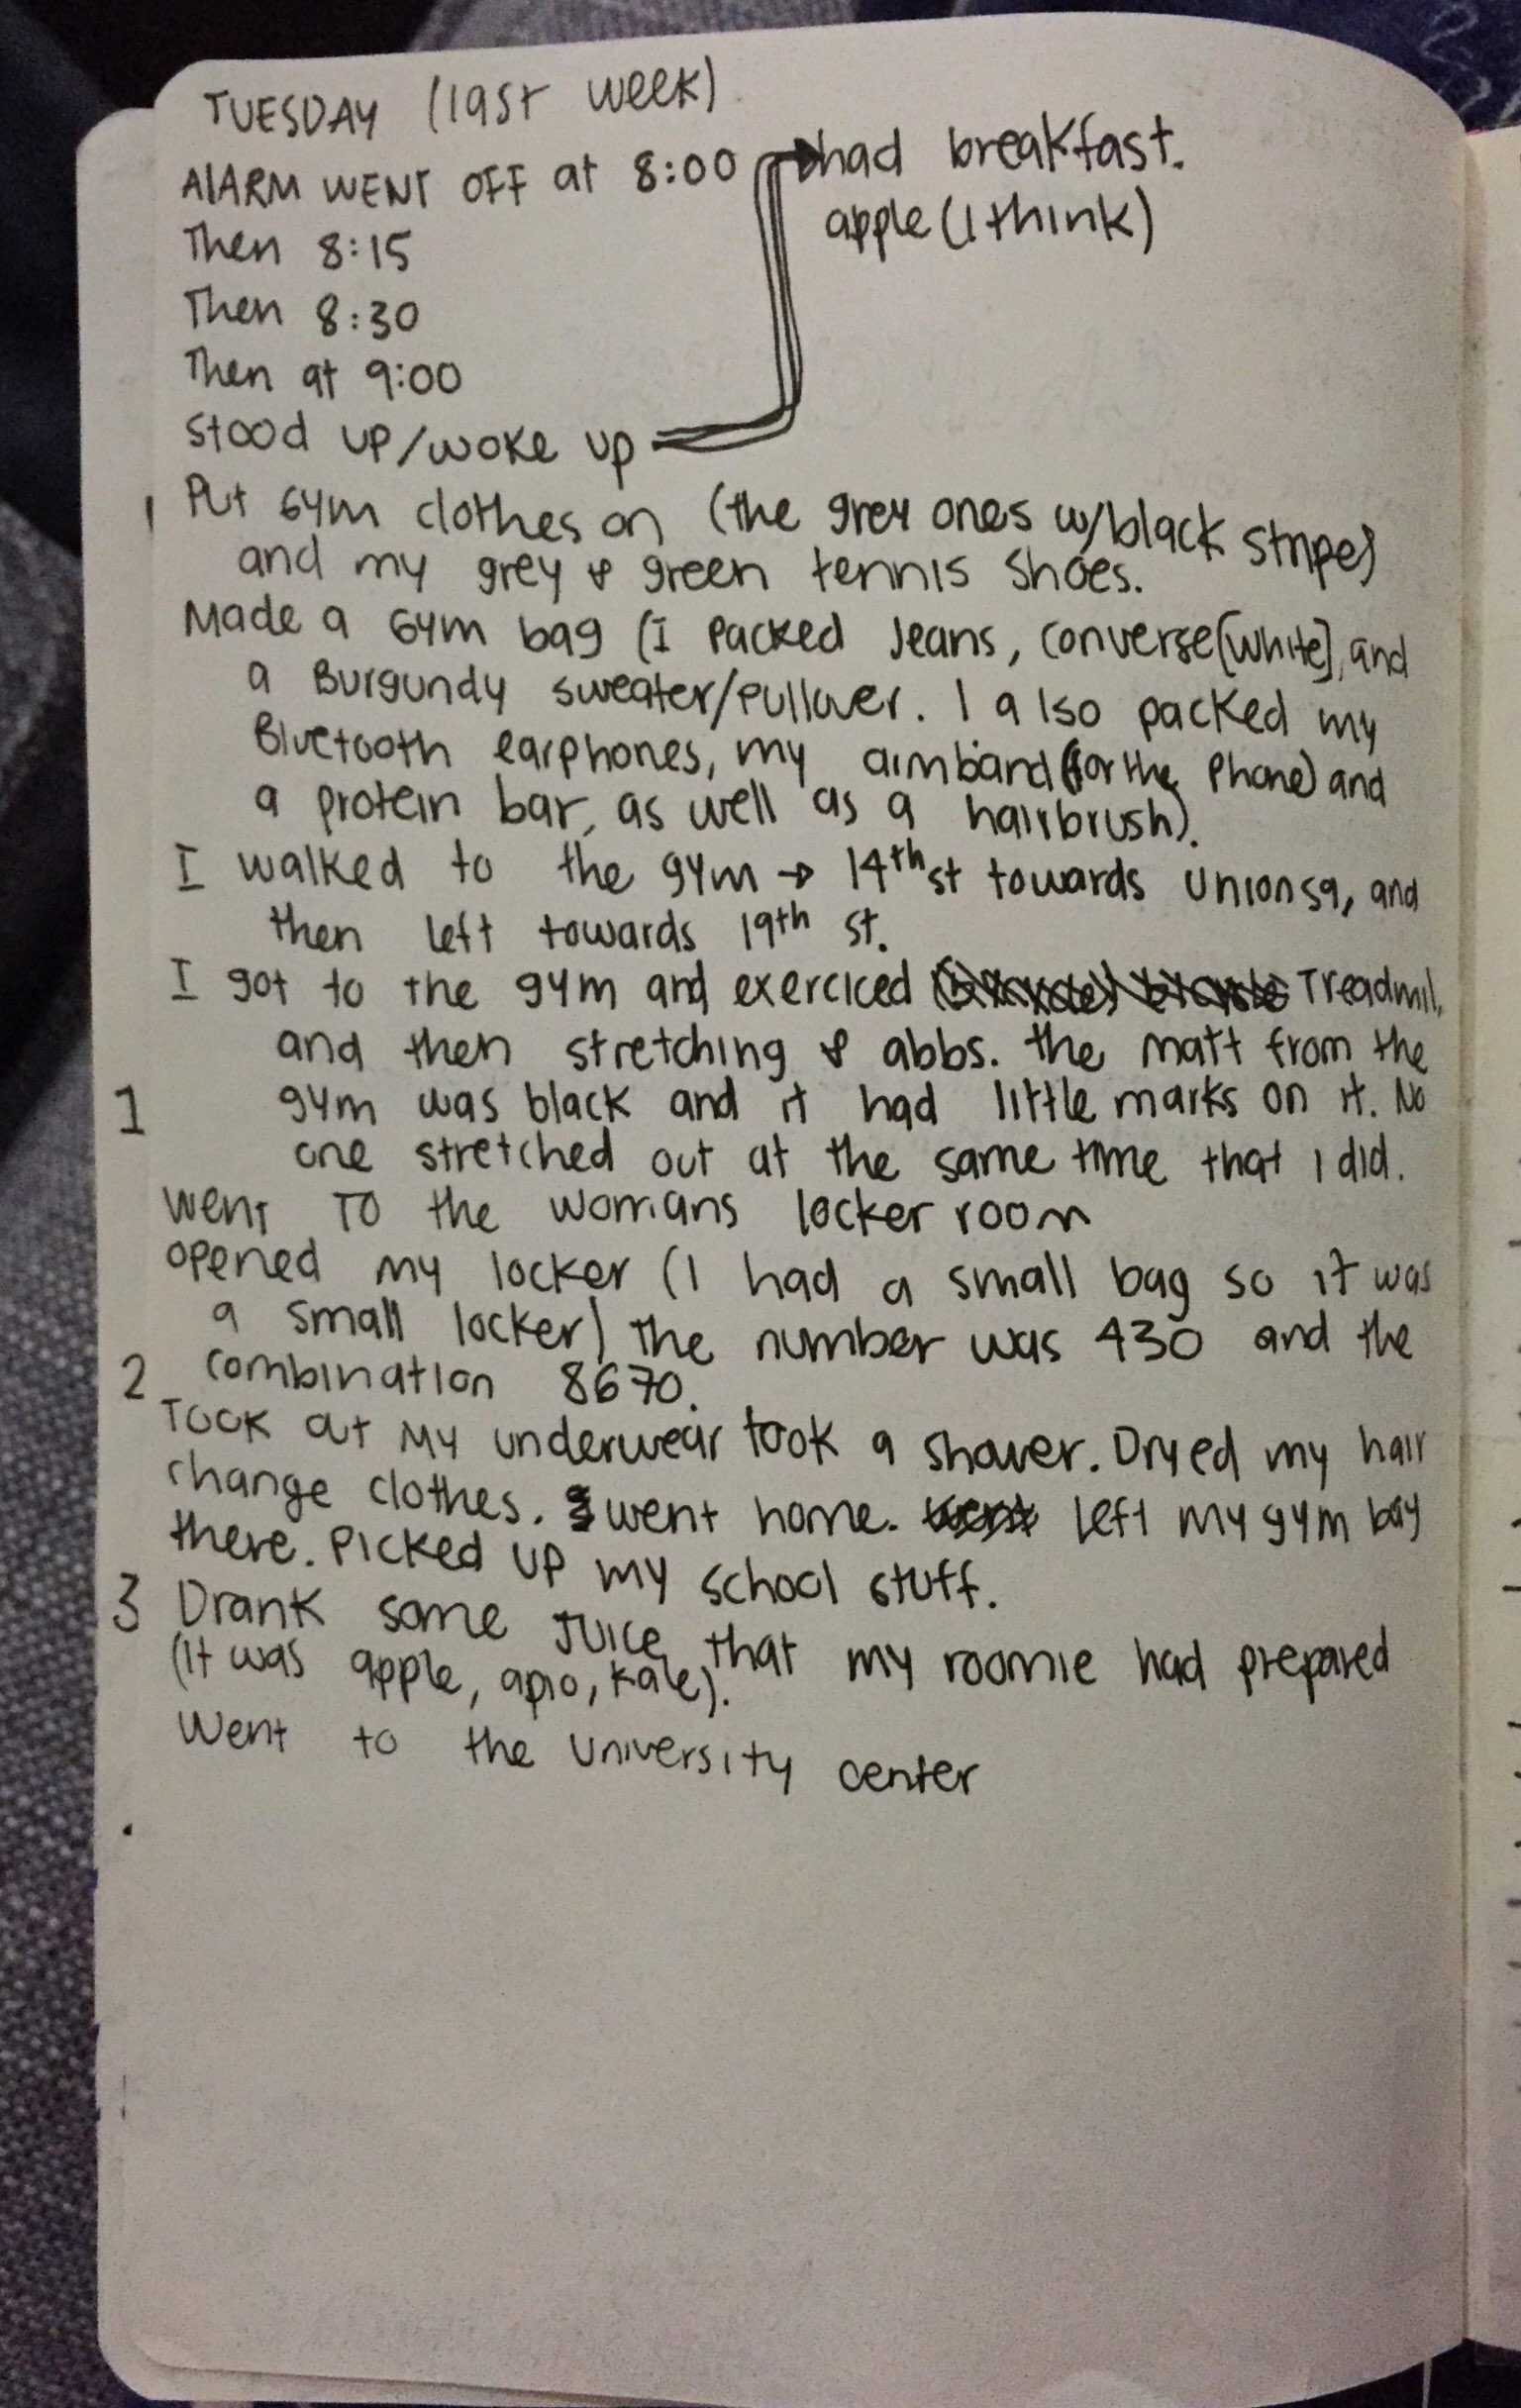 TUESDAY (last week)
AlARM WENT OFF at 8:00
had breakfast.
apple (I think)
Then 8:15
Then 8:30
Then at 9:00
stood up/woke up
Put Gym clothes on (the grey ones w/black stripes
and my grey & green tennis shoes.
Made a Gym bag (I packed Jeans, converse[white], and
a Burgundy sweater/pullover. I also packed my
Bluetooth earphones, my armband (for the Phone) and
a protein bar, as well as a hairbrush).
I walked to the gym → 14th st towards Unionsq, and
then left towards 19th st.
I got to the gym and exerciced Treadmil,
and then stretching & abbs. the matt from the
1 gym was black and it had little marks on it. No
one stretched out at the same time that I did.
Went TO the womans locker room
opened my locker (I had a small bag so it was
a small locker) the number was 430 and the
2 combination 8670.
Took out my underwear took a shower. Dryed my hair
change clothes. went home. Left my gym bag
there. Picked up my school stuff.
3 Drank some Juice that my roomie had prepared
(It was apple, apio, kale).
Went to the University center